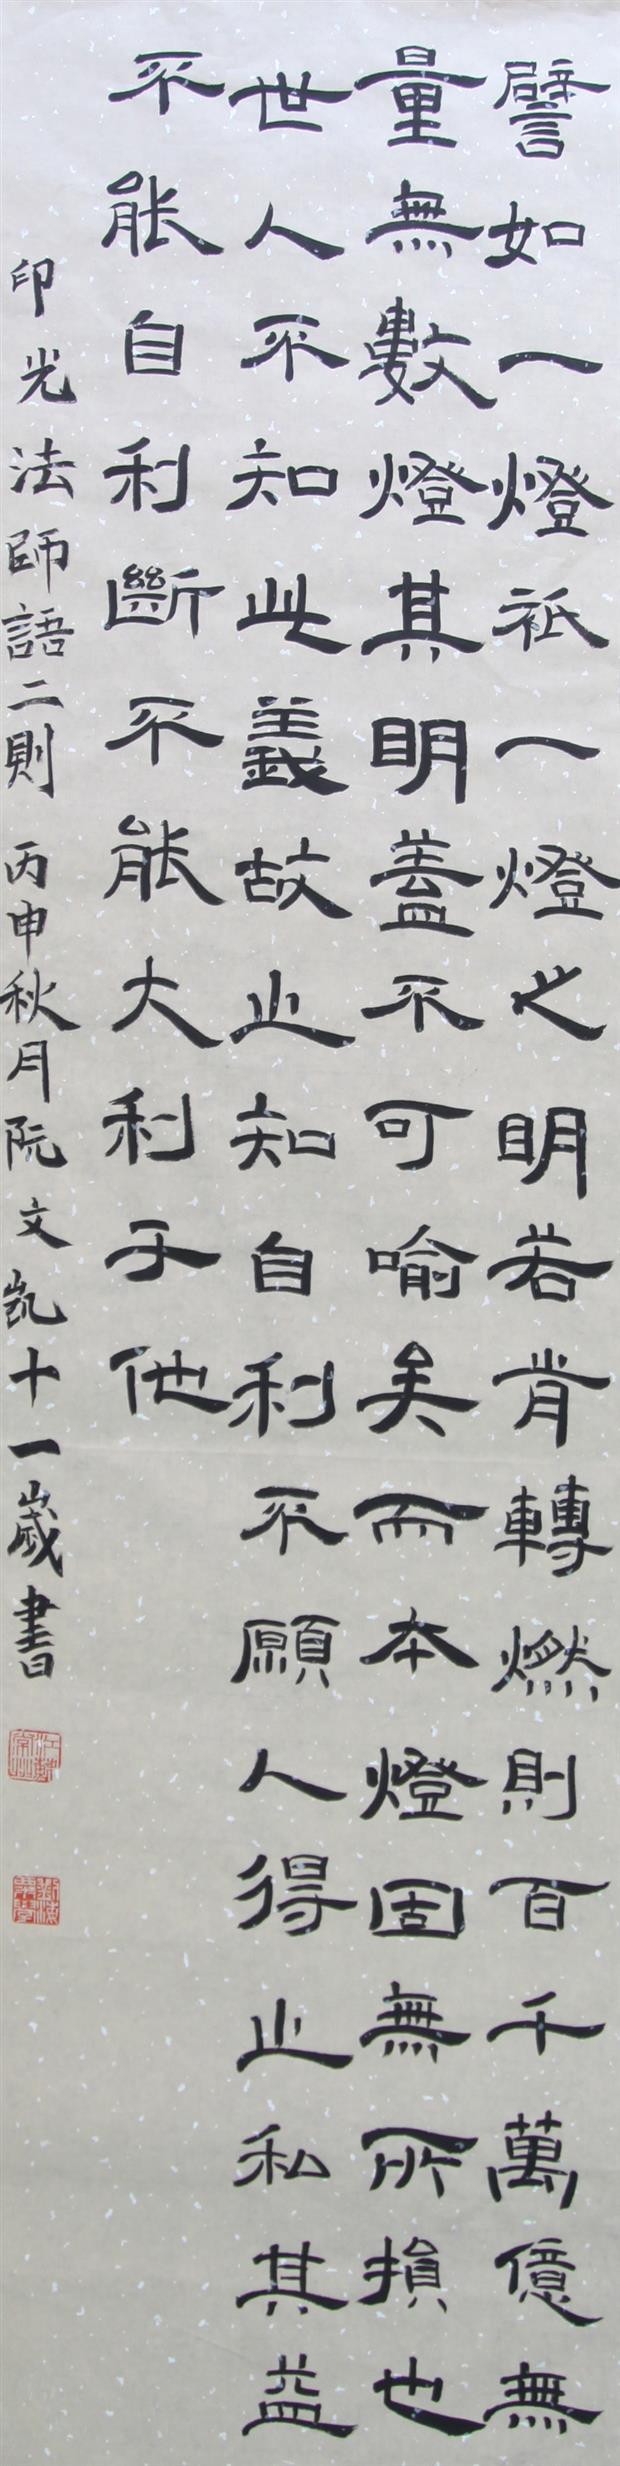 譬如一燈祇一燈之明若肯轉燃則百千萬億無
量無數燈其明蓋不可喻矣而本燈固無所損也
世人不知此義故止知自利不願人得止私其益
不能自利斷不能大利于他
印光法師語二則 丙申秋月阮文凱十一歲書